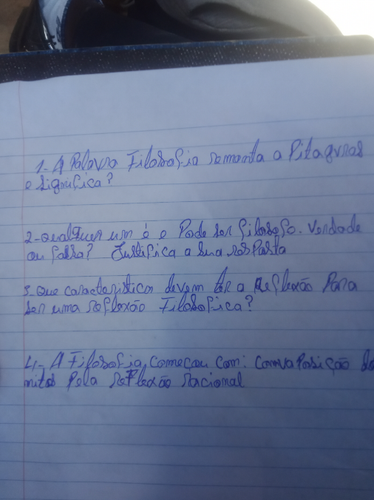 1- A Palavra Filosofia remonta a Pitagoras
e significa?
2- qualquer um é e Pode ser filosofo. Verdade
ou falsa? Justifica a sua resposta
3. que caracteristicas devem ter a Reflexão Para
ser uma reflexão Filosofica?
4- A Filosofia, começou com: a
mitos Pela reflexão racional